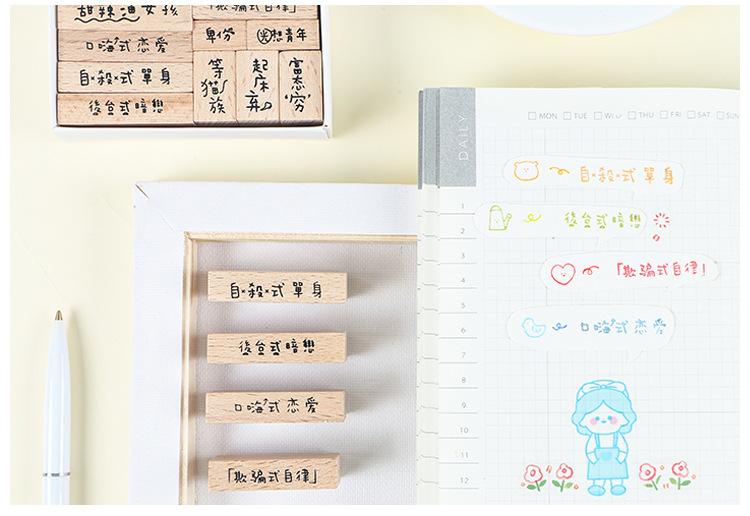 甜辣酒女孩
「欺骗式自律」
口嗨式恋爱
自×殺×式單身
後台式暗戀
卑份
光想青年
等猫族
起床弃
富态穷
DAILY
MON TUE WED THU FRI SAT SUN
1
2
3
4
5
6
7
8
9
10
11
12
自×殺×式單身
後台式暗戀
「欺骗式自律」
口嗨式恋爱
自×殺×式單身
後台式暗戀
口嗨式恋爱
「欺骗式自律」